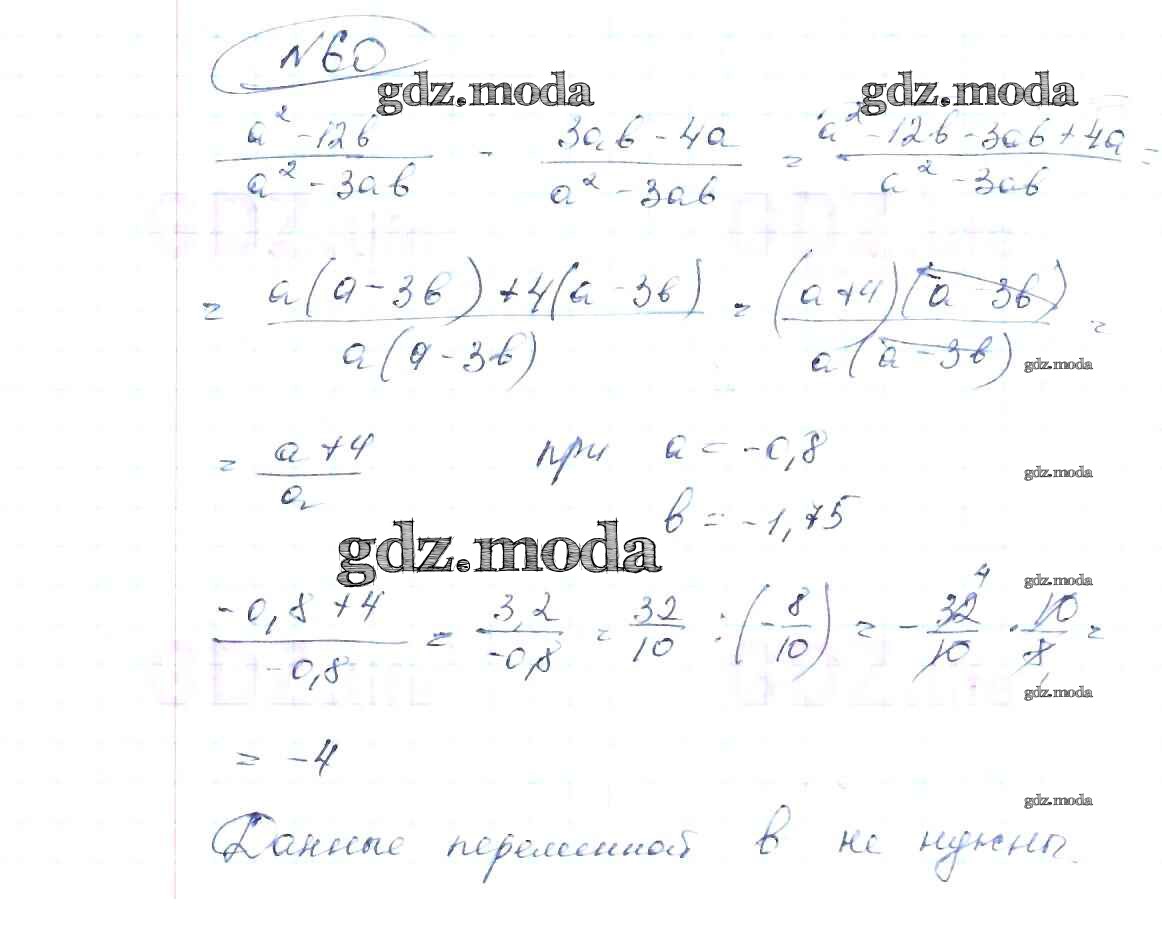 №60
gdz.moda gdz.moda
a² - 12b / a² - 3ab - 3ab - 4a / a² - 3ab = a² - 12b - 3ab + 4a / a² - 3ab =
= a(a - 3b) + 4(a - 3b) / a(a - 3b) = (a + 4)(a - 3b) / a(a - 3b) =
gdz.moda
= a + 4 / a при a = -0,8
gdz.moda
b = -1,75
gdz.moda
gdz.moda
-0,8 + 4 / -0,8 = 3,2 / -0,8 = 32 / 10 : (-8 / 10) = -32 4 / 10 · 10 / 8 1 =
gdz.moda
= -4
gdz.moda
Данные переменной b не нужны.